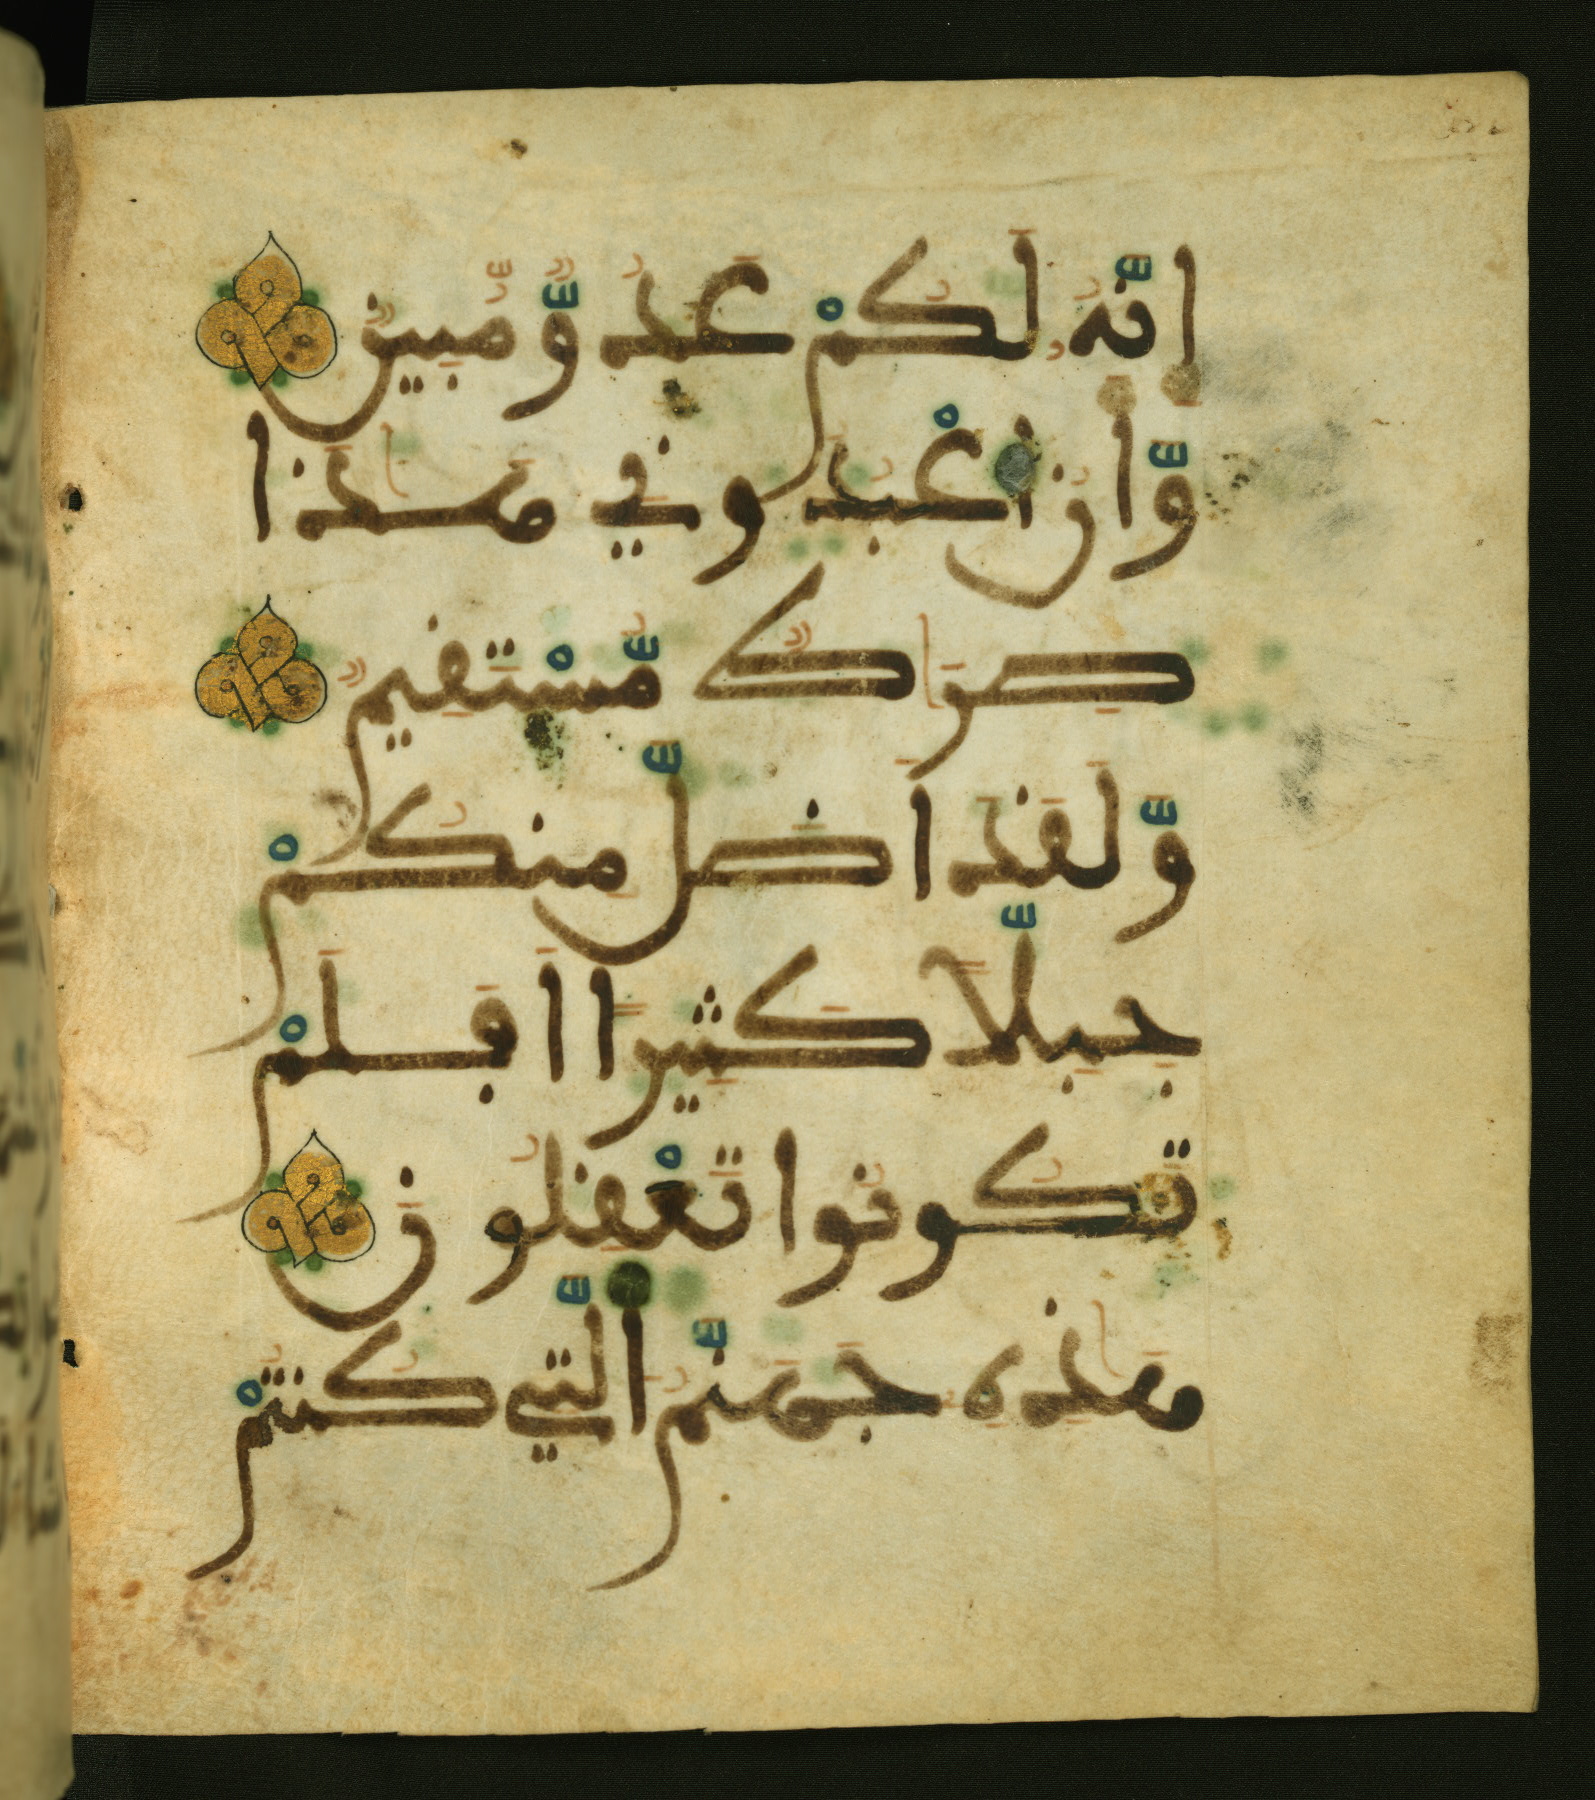 اِنَّهُۥ لَكُمْ عَدُوٌّ مُّبِينٌ
وَّأَنُ اُعْبُدُونِي هَٰذَا
صِرَٰطٌ مُّسْتَقِيمٌ
وَّلَقَدَ اَضَلَّ مِنكُمْ
جِبِلّاً كَثِيراً اَفَلَمْ
تَكُونُوا تَعْقِلُونَ
هَٰذِهِۦ جَهَنَّمُ اُلَّتِي كُنتُمْ